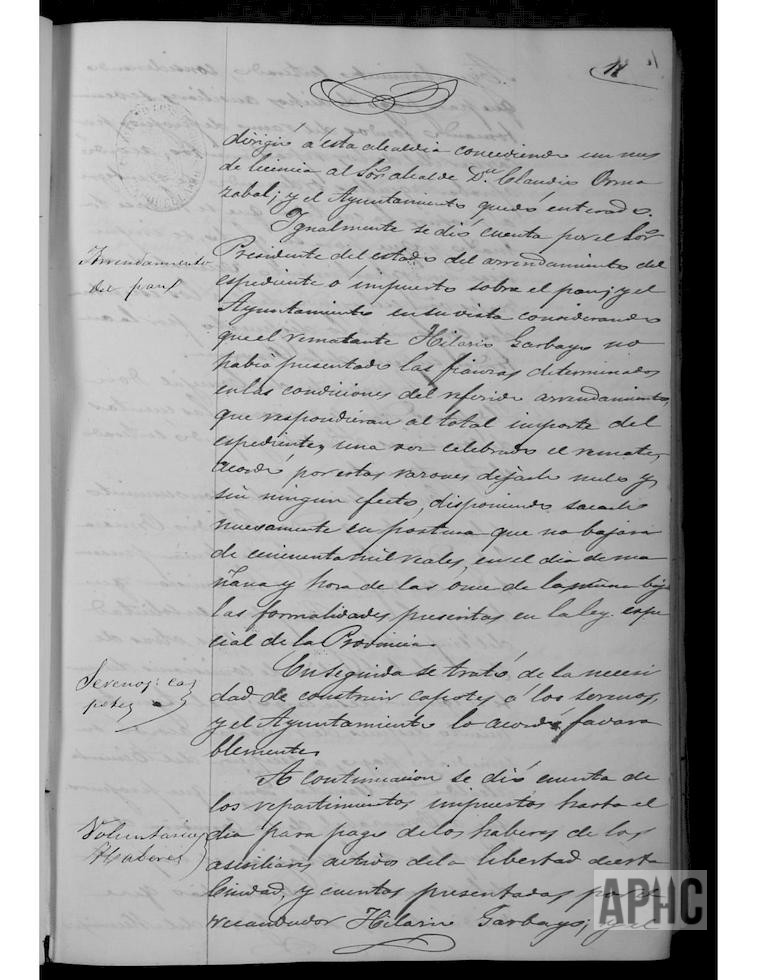 dirigió á esta alcaldia concediendo un mes
de licencia al Sor alcalde Dn Claudio Orma
zabal; y el Ayuntamiento quedó enterado.
Igualmente se dió cuenta por el Sor
Arrendamiento
del pan
Presidente del estado del arrendamiento del
espediente ó impuesto sobre el pan; y el
Ayuntamiento en su vista considerando
que el rematante Hilario Garbayo no
habia presentado las fianzas determinadas
en las condiciones del referido arrendamiento,
que respondieran al total importe del
espediente, una vez celebrado el remate,
acordó por estas razones dejarle nulo y
sin ningun efecto, disponiendo sacarle
nuevamente en postura que no bajara
de cincuenta mil reales, en el dia de ma
ñana y hora de las once de la mñna bajo
las formalidades prescritas en la ley espe
cial de la Provincia.
Serenos: ca
potes
En seguida se trató de la necesi
dad de construir capotes á los serenos,
y el Ayuntamiento lo acordó favora
blemente.
A continuacion se dió cuenta de
los repartimientos impuestos hasta el
Voluntarios
Haberes
dia para pago de los haberes de los
auxiliares activos de la libertad de esta
Ciudad, y cuentas presentadas por el
recaudador Hilario Garbayo; y el
APHC